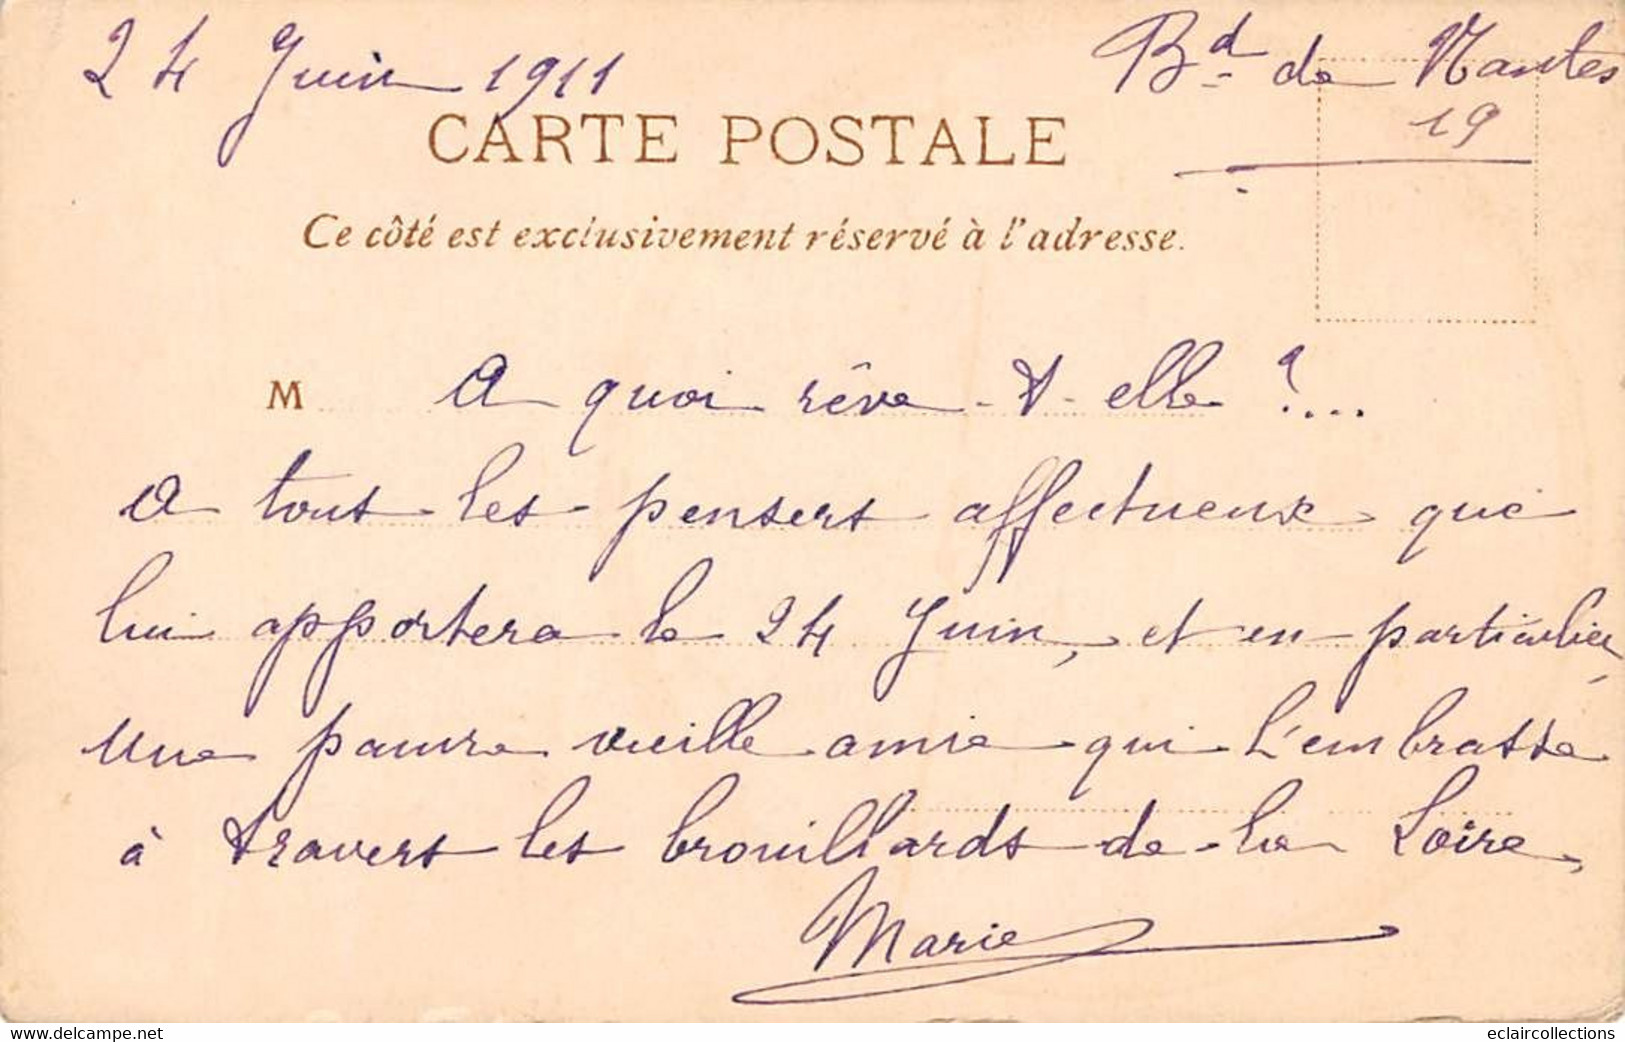 24 Juin 1911
Bd de Nantes
19
CARTE POSTALE
Ce côté est exclusivement réservé à l'adresse.
M A quoi rêve-t-elle ?...
A tous les pensers affectueux que
lui apportera le 24 Juin, et en particulier
une pauvre vieille amie qui l'embrasse
à travers les brouillards de la Loire,
Marie
www.delcampe.net
eclaircollections